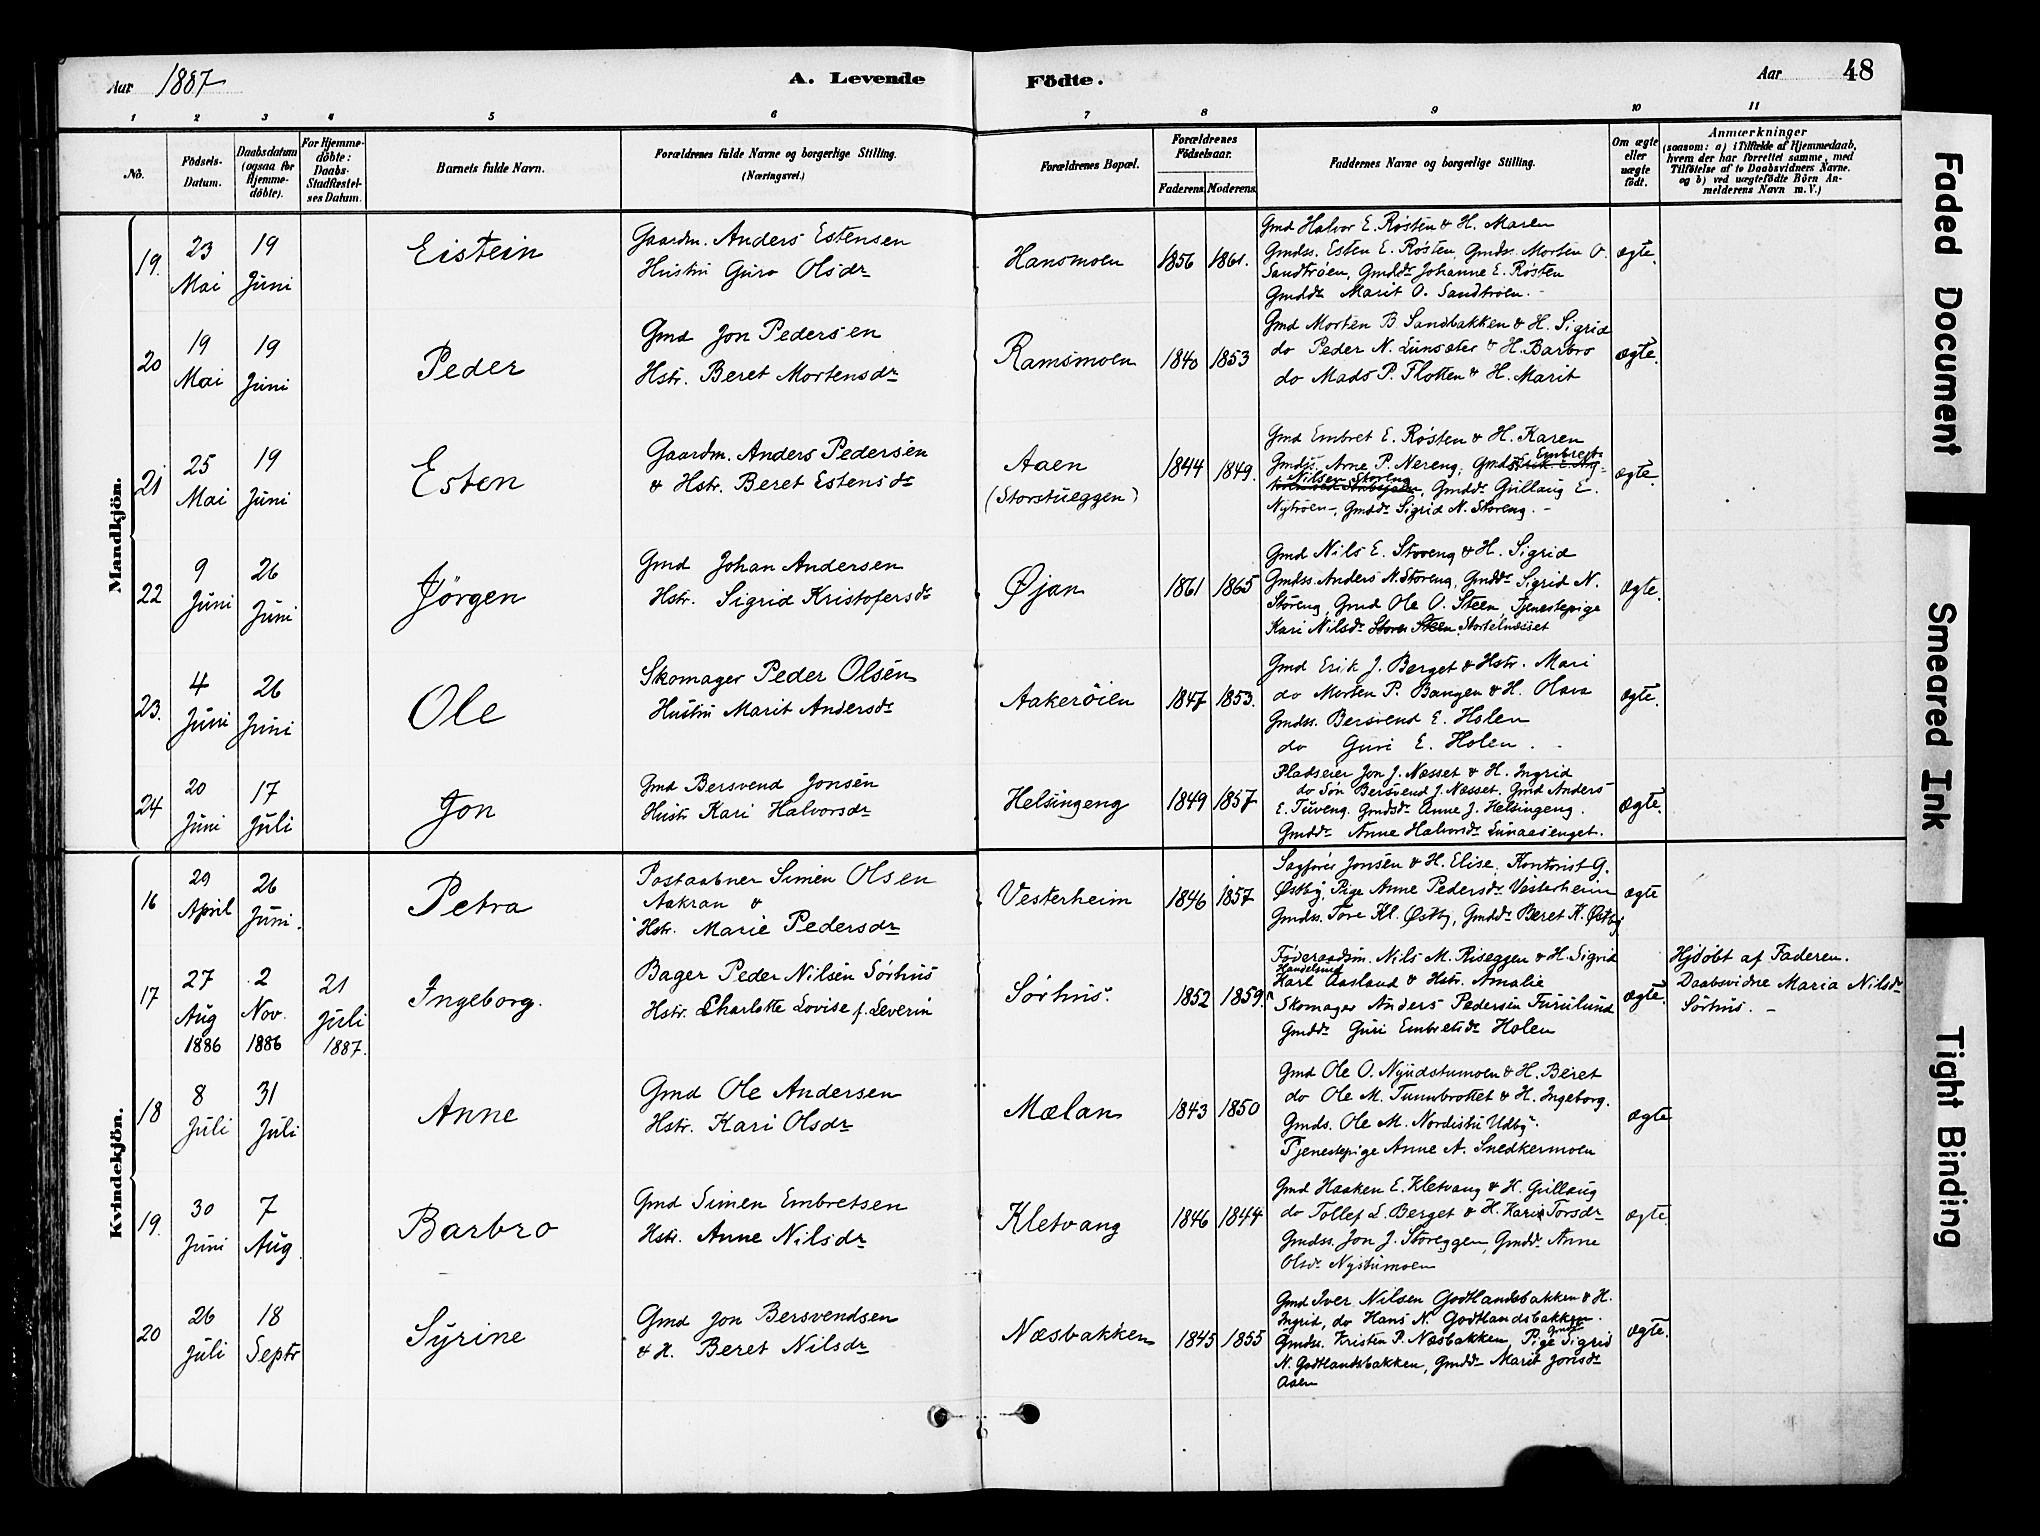 Aar 1887 A. Levende Födte. Aar 48
1 2 3 4 5 6 7 8 9 10 11
No.
Födsels-
Datum.
Daabsdatum
(ogsaa for
Hjemme-
döbte).
For Hjemme-
döbte:
Daabs-
Stadfæstel-
ses Datum.
Barnets fulde Navn.
Forældrenes fulde Navne og borgerlige Stilling.
(Næringsvei.)
Forældrenes Bopæl.
Forældrenes
Födselsaar.
Faderens. Moderens.
Faddernes Navne og borgerlige Stilling.
Om ægte
eller
uægte
födt.
Anmærkninger
(saasom: a) i Tilfælde af Hjemmedaab,
hvem der har forrettet samme, med
Tilföielse af to Daabsvidners Navne.
og b) ved uægtefödte Börn An-
melderens Navn m. V.)
Mandkjön.
19.
23
Mai
19
Juni
Eistein
Gaardm. Anders Estensen
Hustru Guro Olsdr
Hansmoen
1856 1861.
Gmd Halvor E. Røsten & H. Maren
Gmdss. Esten E. Røsten, Gmdss. Morten O.
Sandtrøen, Gmddr Johanne E. Røsten
Gmddr Marit O. Sandtrøen.
ægte.
20
19
Mai
19
Juni
Peder
Gmd Jon Pedersen
Hstr. Beret Mortensdr
Ramsmoen
1840 1853
Gmd Morten B. Sandbakken & H. Sigrid
do Peder N. Lunsæter & H. Barbro
do Mads P. Flotten & H. Marit
ægte.
21
25
Mai
19
Juni
Esten
Gaardm. Anders Pedersen
& Hstr. Beret Estensdr
Aaen
(Storstueggen)
1844 1849.
Gmd Embret E. Røsten & H. Karen
Gmdss. Arne P. Nereng, Gmdss Embret
Nilsen Storeng, Gmddr Gullaug E.
Nytrøen, Gmddr Sigrid N. Storeng.
ægte.
22
9
Juni
26
Juni
Jørgen
Gmd Johan Andersen
Hstr. Sigrid Kristofersdr
Øjan
1861 1865
Gmd Nils E. Storeng & H. Sigrid
Gmdss. Anders N. Storeng, Gmddr Sigrid N.
Storeng, Gmd Ole O. Steen, Tjenestepige
Kari Nilsdr Stortelnæsset
ægte.
23.
4
Juni
26
Juni
Ole
Skomager Peder Olsen
Hustru Marit Andersdr
Aakerøien
1847 1853.
Gmd Erik J. Berget & Hstr. Mari
do Morten P. Bangen & H. Olava
Gmdss. Bersvend E. Holen
do Guri E. Holen.
ægte.
24
20
Juni
17
Juli
Jon
Gmd Bersvend Jonsen
Hustr Kari Halvorsdr
Helsingeng
1849 1857
Pladseier Jon J. Næsset & H. Ingrid
do Søn Bersvend J. Næsset. Gmd Anders
E. Tuveng. Gmdsdr Anne J. Helsingeng.
Gmddr Anne Halvorsdr Lunaasenget.
ægte.
Kvindekjön.
16
29
April
26
Juni.
Petra
Postaabner Simen Olsen
Aakran &
Hstr. Marie Pedersdr
Vesterheim
1846 1857
Sagfører Jonsen & H. Elise. Kontorist G.
Østby, Pige Anne Pedersdr Vesterheim
Gmdss. Tore Kl. Østby, Gmddr Beret K. Østby
ægte
17
27
Aug
1886
2
Nov.
1886
21
Juli
1887.
Ingeborg.
Bager Peder Nilsen Sörhus
Hstr. Charlotte Lovise f. Leverin
Sörhus.
1852 1859.
Føderaadsm. Nils M. Riseggen & H. Sigrid
Handelsmd
Karl Aasland & Hstr. Amalie
Skomager Anders Pedersen Furulund
Gmddr Guri Embretsdr Holen
ægte.
Hjdöbt af Faderen.
Daabsvidne Maria Nilsdr
Sörhus.
18
8
Juli
31
Juli
Anne
Gmd Ole Andersen
Hstr. Kari Olsdr
Mælan
1843 1850
Gmd Ole O. Nyudstumoen & H. Beret
do Ole M. Tunnbrottet & H. Ingeborg.
Gmds. Ole M. Nordistu Udby.
Tjenestepige Anne A. Snedkermoen
ægte
19.
30
Juni
7
Aug.
Barbro
Gmd Simen Embretsen
Hstr. Anne Nilsdr
Kletvang
1846 1844
Gmd Haaken E. Kletvang & H. Gullaug
do Tollef L. Berget & H. Kari Torsdr
Gmdss. Jon J. Storeggen, Gmdd. Anne
Olsdr Nystumoen
ægte.
20
26
Juli
18
Septr
Syrine
Gmd Jon Bersvendsen
& H. Beret Nilsdr
Næsbakken
1845 1855
Gmd Iver Nilsen Godtlandsbakken & H.
Ingrid, do Hans N. Godtlandsbakken.
Gmdss. Kristen P. Næsbakken, Pige Sigrid
N. Godtlandsbakken, Gmddr Marit Jonsdr
Aaen
ægte.
Faded Document
Smeared Ink
Tight Binding